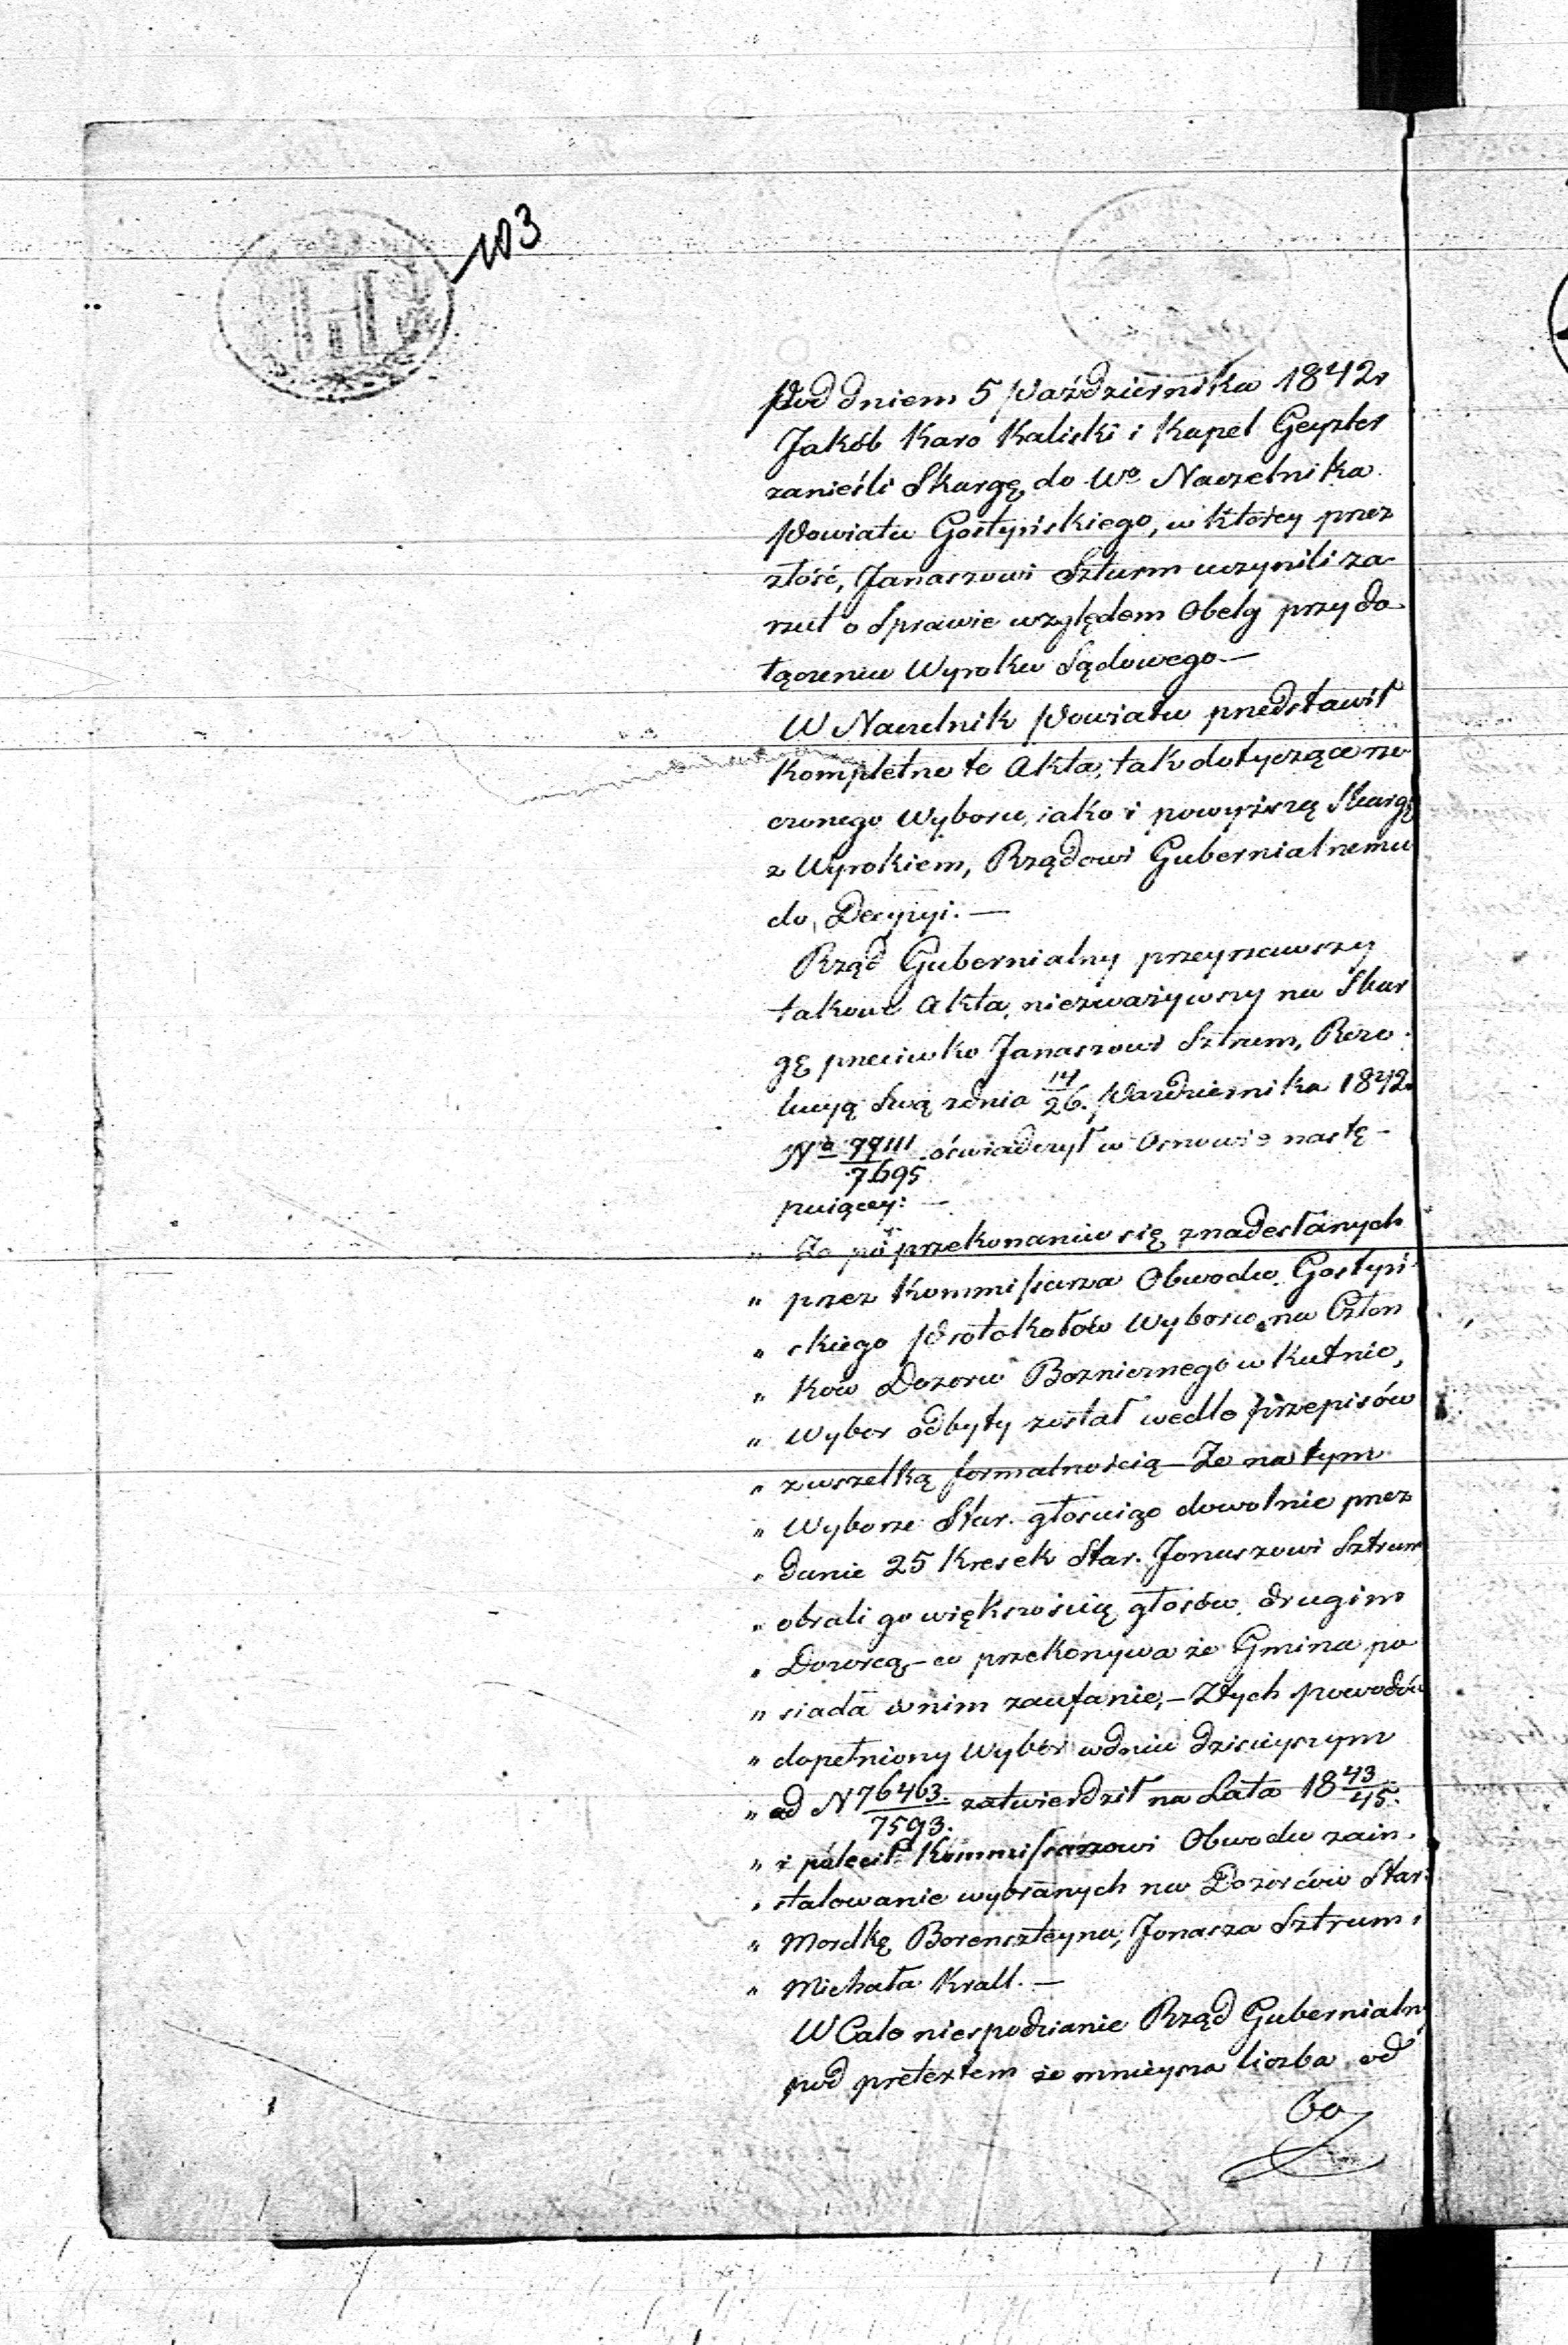 103
Pod dniem 5 Października 1842r
Jakób Karo Kaliski i Kapel Geyzler
zanieśli Skargę do Wo Naczelnika
Powiatu Gostyńskiego, w którey przez
złość, Janaszowi Szturm uczynili za-
rzut o Sprawie względem Obelg przy do
łączeniu Wyroku Sądowego.—
W Naczelnik Powiatu przedstawił
kompletne te Akta, tak dotyczące rze
czonego Wyboru, iako i powyższą Skargę
z Wyrokiem, Rządowi Gubernialnemu
do Decyzyi.—
Rząd Gubernialny przeyrzawszy
takowe Akta, niezważywszy na Skar
gę przeciwko Janaszowi Sztrum, Rezo-
lucyą swą zdnia 14/26. Października 1842.
No 77111/7695 oświadczył w Osnowie nastę-
puiącey: —
" Że po przekonaniu się znadesłanych
" przez Kommissarza Obwodu Gostyń-
" skiego Protokołów Wyboru na Człon
" ków Dozoru Boznicznego w Kutnie,
" Wybor odbyty został wedle przepisów
" zwszelką formalnością – Że na tym
" Wyborze Star. głosuiąc dowolnie przez
" danie 25 kresek Star. Jonaszowi Sztrum
" obrali go większością głosów drugim
" Dozorcą, – co przekonywa że Gmina po
" siada w nim zaufanie, – Ztych powodów
" dopełniony Wybór wdniu dzisieyszym
" ad N 76463./7593. zatwierdził na Lata 1843/45.
" i polecił Kommissarzowi Obwodu zain-
" stalowanie wybranych na Dozorców Star:
" Mordkę Borenszteyna, Jonasza Sztrum i
" Michała Krall.—
W Cale niespodzianie Rząd Gubernialny
pod pretextem że mnieysza liczba od